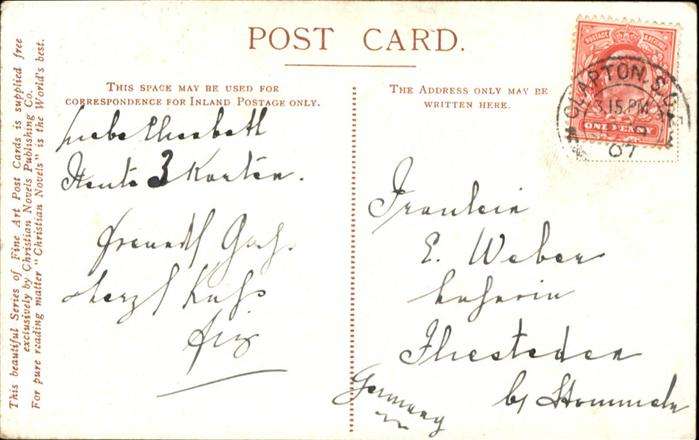 POST CARD.
THIS SPACE MAY BE USED FOR
CORRESPONDENCE FOR INLAND POSTAGE ONLY.
THE ADDRESS ONLY MAY BE
WRITTEN HERE.
This beautiful Series of Fine Art Post Cards is supplied free
exclusively by Christian Novels Publishing Co.
For pure reading matter "Christian Novels" is the World's best.
POSTAGE REVENUE
ONE PENNY
CLAPTON S.O.
3.15.PM
07
Liebe Elisabeth
Heute 3 Karten.
freundl Gruß
herzl Kuß
Fräulein
E. Weber
Lehrerin
Fliesteden
by Stommeln
Germany